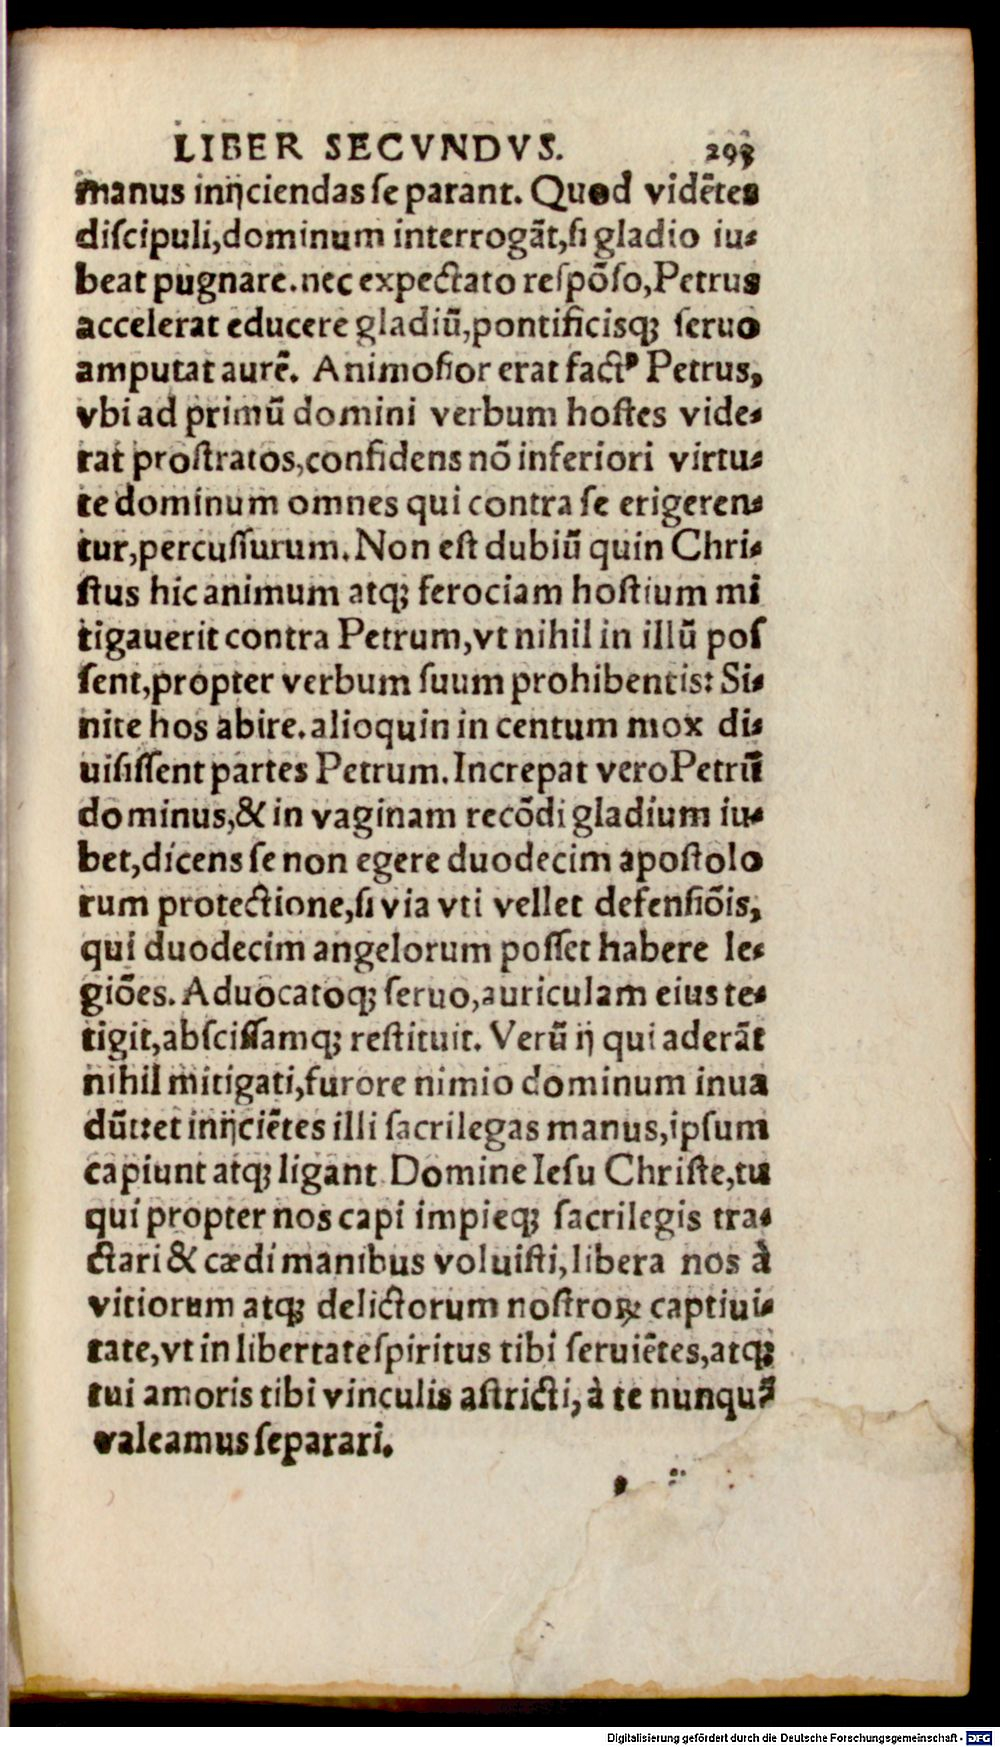 LIBER SECVNDVS. 293
manus inijciendas se parant. Quod vidētes
discipuli, dominum interrogāt, si gladio iu-
beat pugnare. nec expectato respōso, Petrus
accelerat educere gladiū, pontificisq; seruo
amputat aurē. Animosior erat fact⁹ Petrus,
vbi ad primū domini verbum hostes vide-
rat prostratos, confidens nō inferiori virtu-
te dominum omnes qui contra se erigeren-
tur, percussurum. Non est dubiū quin Chri-
stus hic animum atq; ferociam hostium mi
tigauerit contra Petrum, vt nihil in illū pos
sent, propter verbum suum prohibentis: Si-
nite hos abire. alioquin in centum mox di-
uisissent partes Petrum. Increpat vero Petrū
dominus, & in vaginam recōdi gladium iu-
bet, dicens se non egere duodecim apostolo
rum protectione, si via vti vellet defensiōis,
qui duodecim angelorum posset habere le-
giōes. Aduocatoq; seruo, auriculam eius te-
tigit, abscissamq; restituit. Verū ij qui aderāt
nihil mitigati, furore nimio dominum inua
dūt: et inijciētes illi sacrilegas manus, ipsum
capiunt atq; ligant Domine Iesu Christe, tu
qui propter nos capi impieq; sacrilegis tra-
ctari & cædi manibus voluisti, libera nos à
vitiorum atq; delictorum nostroꝝ captiui-
tate, vt in libertate spiritus tibi seruiētes, atq;
tui amoris tibi vinculis astricti, à te nunquā
valeamus separari.
Digitalisierung gefördert durch die Deutsche Forschungsgemeinschaft - DFG